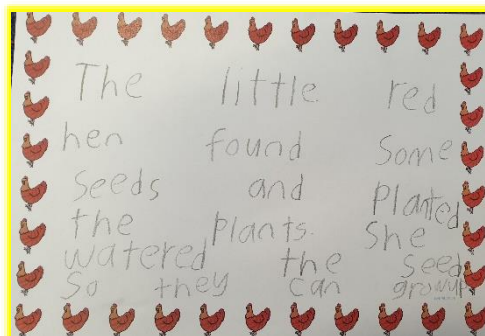 The little red
hen found some
seeds and planted
the plants. She
watered the seed
So they can growup